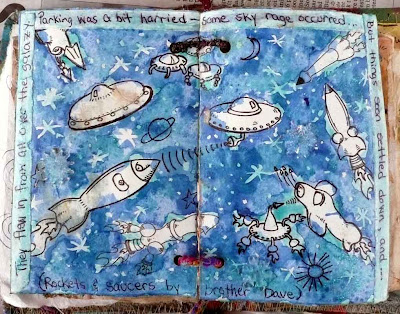 They flew in from all over the galaxy.
Parking was a bit harried - some sky rage occurred.
But things soon settled down and ...
(Rockets & saucers by brother Dave)